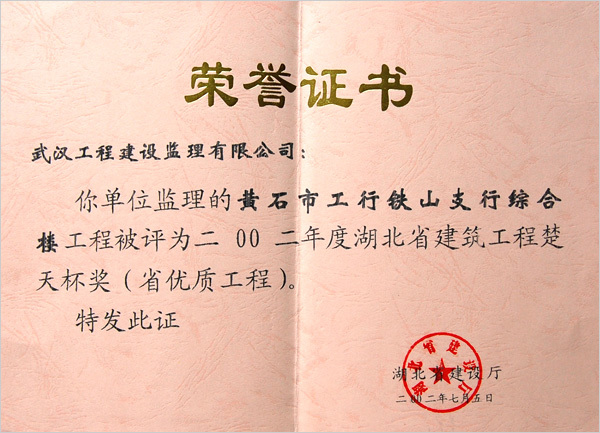 荣誉证书
武汉工程建设监理有限公司：
你单位监理的黄石市工行铁山支行综合
楼工程被评为二00二年度湖北省建筑工程楚
天杯奖（省优质工程）。
特发此证
湖北省建设厅
湖北省建设厅
二00二年七月五日